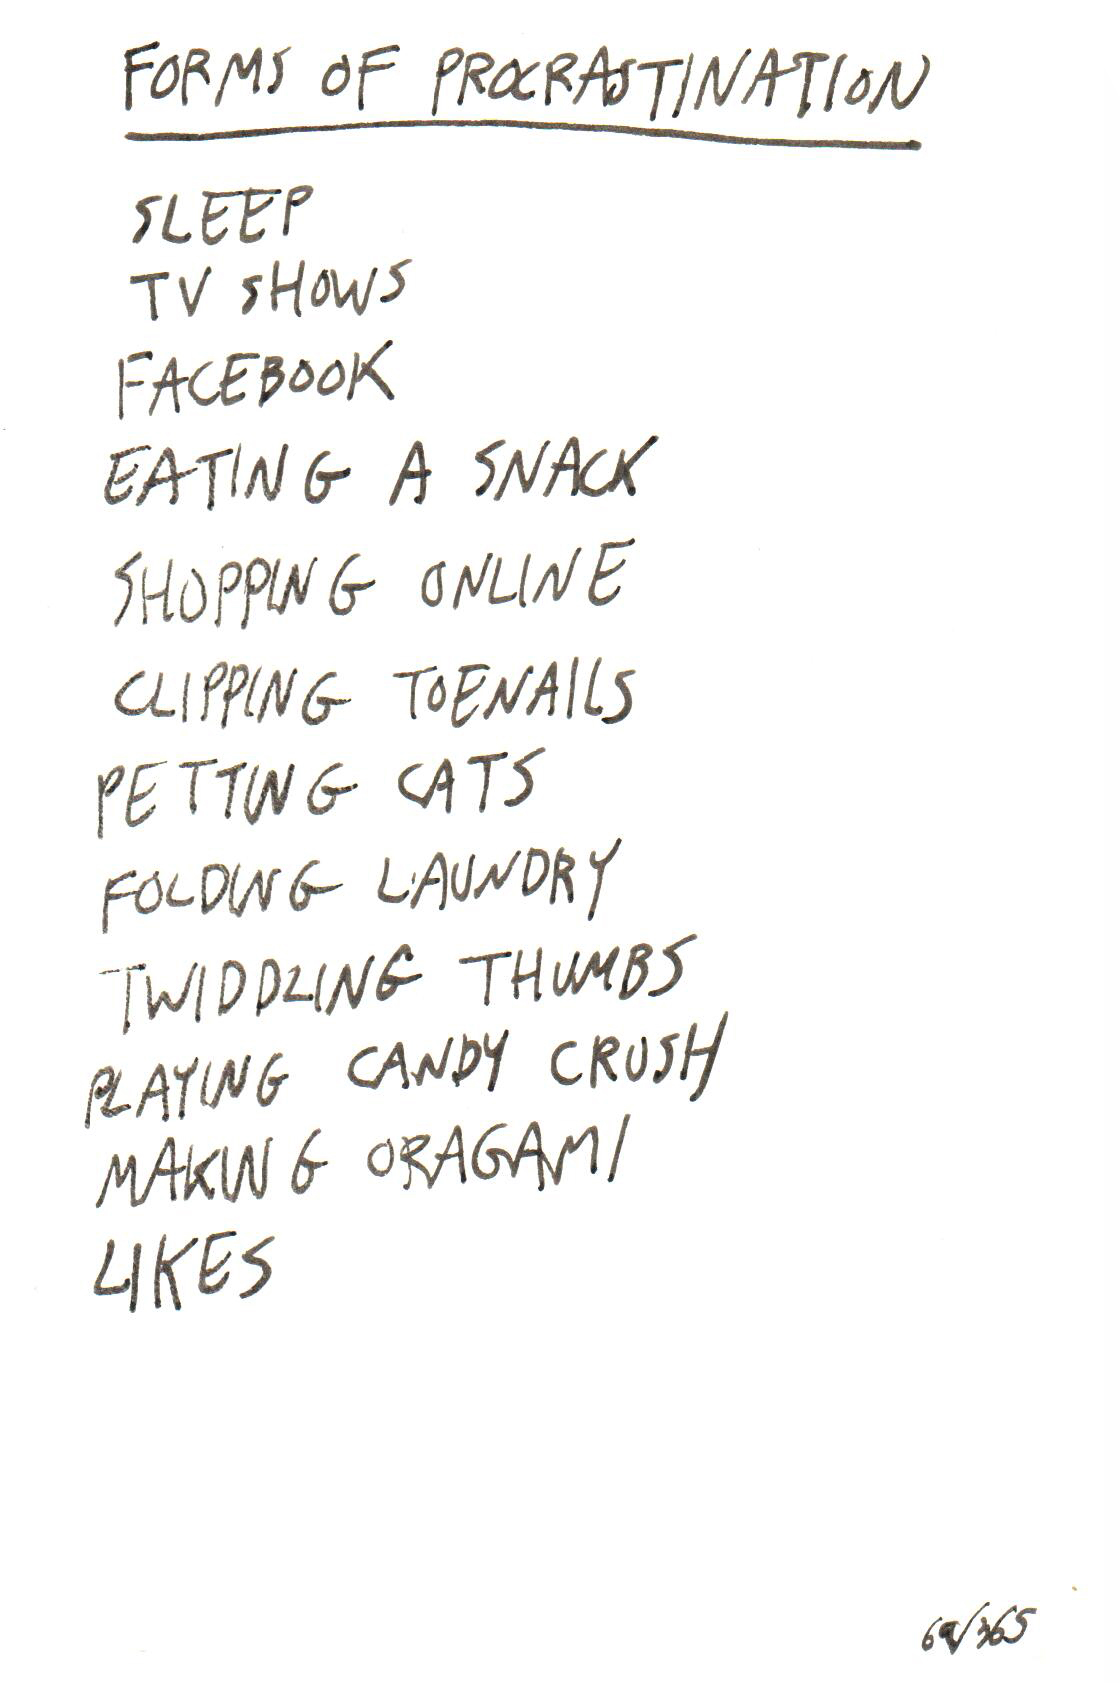 FORMS OF PROCRASTINATION
SLEEP
TV SHOWS
FACEBOOK
EATING A SNACK
SHOPPING ONLINE
CLIPPING TOENAILS
PETTING CATS
FOLDING LAUNDRY
TWIDDLING THUMBS
PLAYING CANDY CRUSH
MAKING ORAGAMI
LIKES
69/365